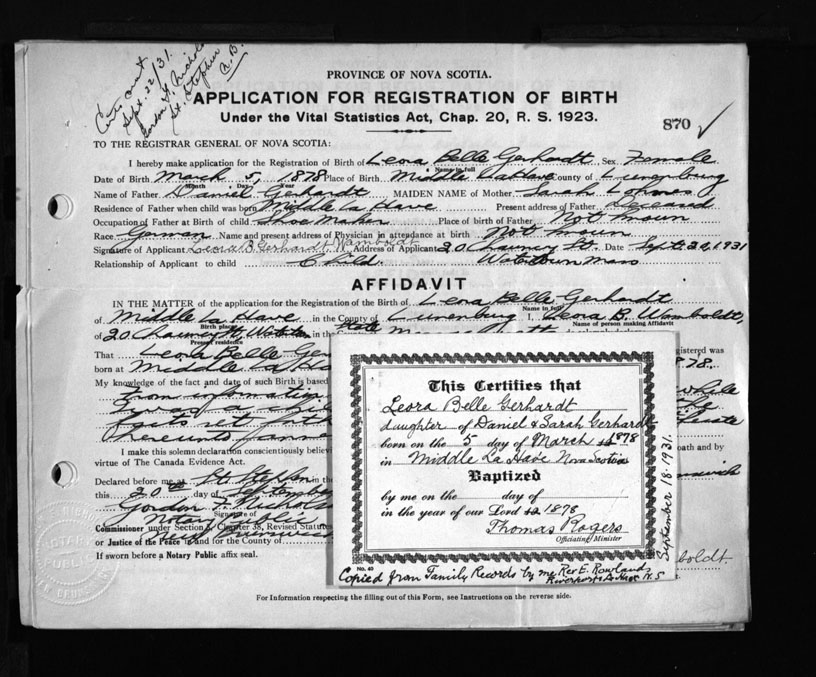 Cert. out
Sept. 22/31.
Gordon T. Nichols
St. Stephen
N.B.
PROVINCE OF NOVA SCOTIA.
APPLICATION FOR REGISTRATION OF BIRTH
Under the Vital Statistics Act, Chap. 20, R. S. 1923.
870 ✓
TO THE REGISTRAR GENERAL OF NOVA SCOTIA:
I hereby make application for the Registration of Birth of Leora Belle Gerhardt Sex Female
Name in full
Date of Birth March 5, 1878 Place of Birth Middle LaHave County of Lunenburg
Month Day Year
Name of Father Daniel Gerhardt MAIDEN NAME of Mother Sarah
Residence of Father when child was born Middle La Have Present address of Father Deceased
Occupation of Father at Birth of child Shoe Maker Place of birth of Father Not Known
Race German Name and present address of Physician in attendance at birth Not Known
Signature of Applicant Leora B Gerhardt Wamboldt Address of Applicant 20 Chauncy St. Date Sept. 20, 1931
Relationship of Applicant to child Child. Watertown Mass
AFFIDAVIT
IN THE MATTER of the application for the Registration of the Birth of Leora Belle Gerhardt
Name in full
of Middle La Have in the County of Lunenburg I, Leora B. Wamboldt,
Birth place Name of person making Affidavit
of 20 Chauncy St, in the State
Present residence
That Leora Belle Ger gistered was
born at Middle La Ha 878.
My knowledge of the fact and date of such Birth is based
From information
facts set forth
hereunto annex
I make this solemn declaration conscientiously believi oath and by
virtue of The Canada Evidence Act.
Declared before me at St. Stephen in the
this 20th day of September
Gordon T. Nichols
Signature of
Notary Public
Commissioner under Section Chapter 38, Revised Statutes
or Justice of the Peace in and for the County of
New Brunswick
If sworn before a Notary Public affix seal.
boldt.
This Certifies that
Leora Belle Gerhardt
daughter of Daniel & Sarah Gerhardt
born on the 5 day of March 1878
in Middle La Have Nova Scotia
Baptized
by me on the day of
in the year of our Lord 1878
Thomas Rogers
Officiating Minister
No. 40
Copied from Family Records by me Rev E. Rowlands
N. S
September 18. 1931.
For Information respecting the filling out of this Form, see Instructions on the reverse side.